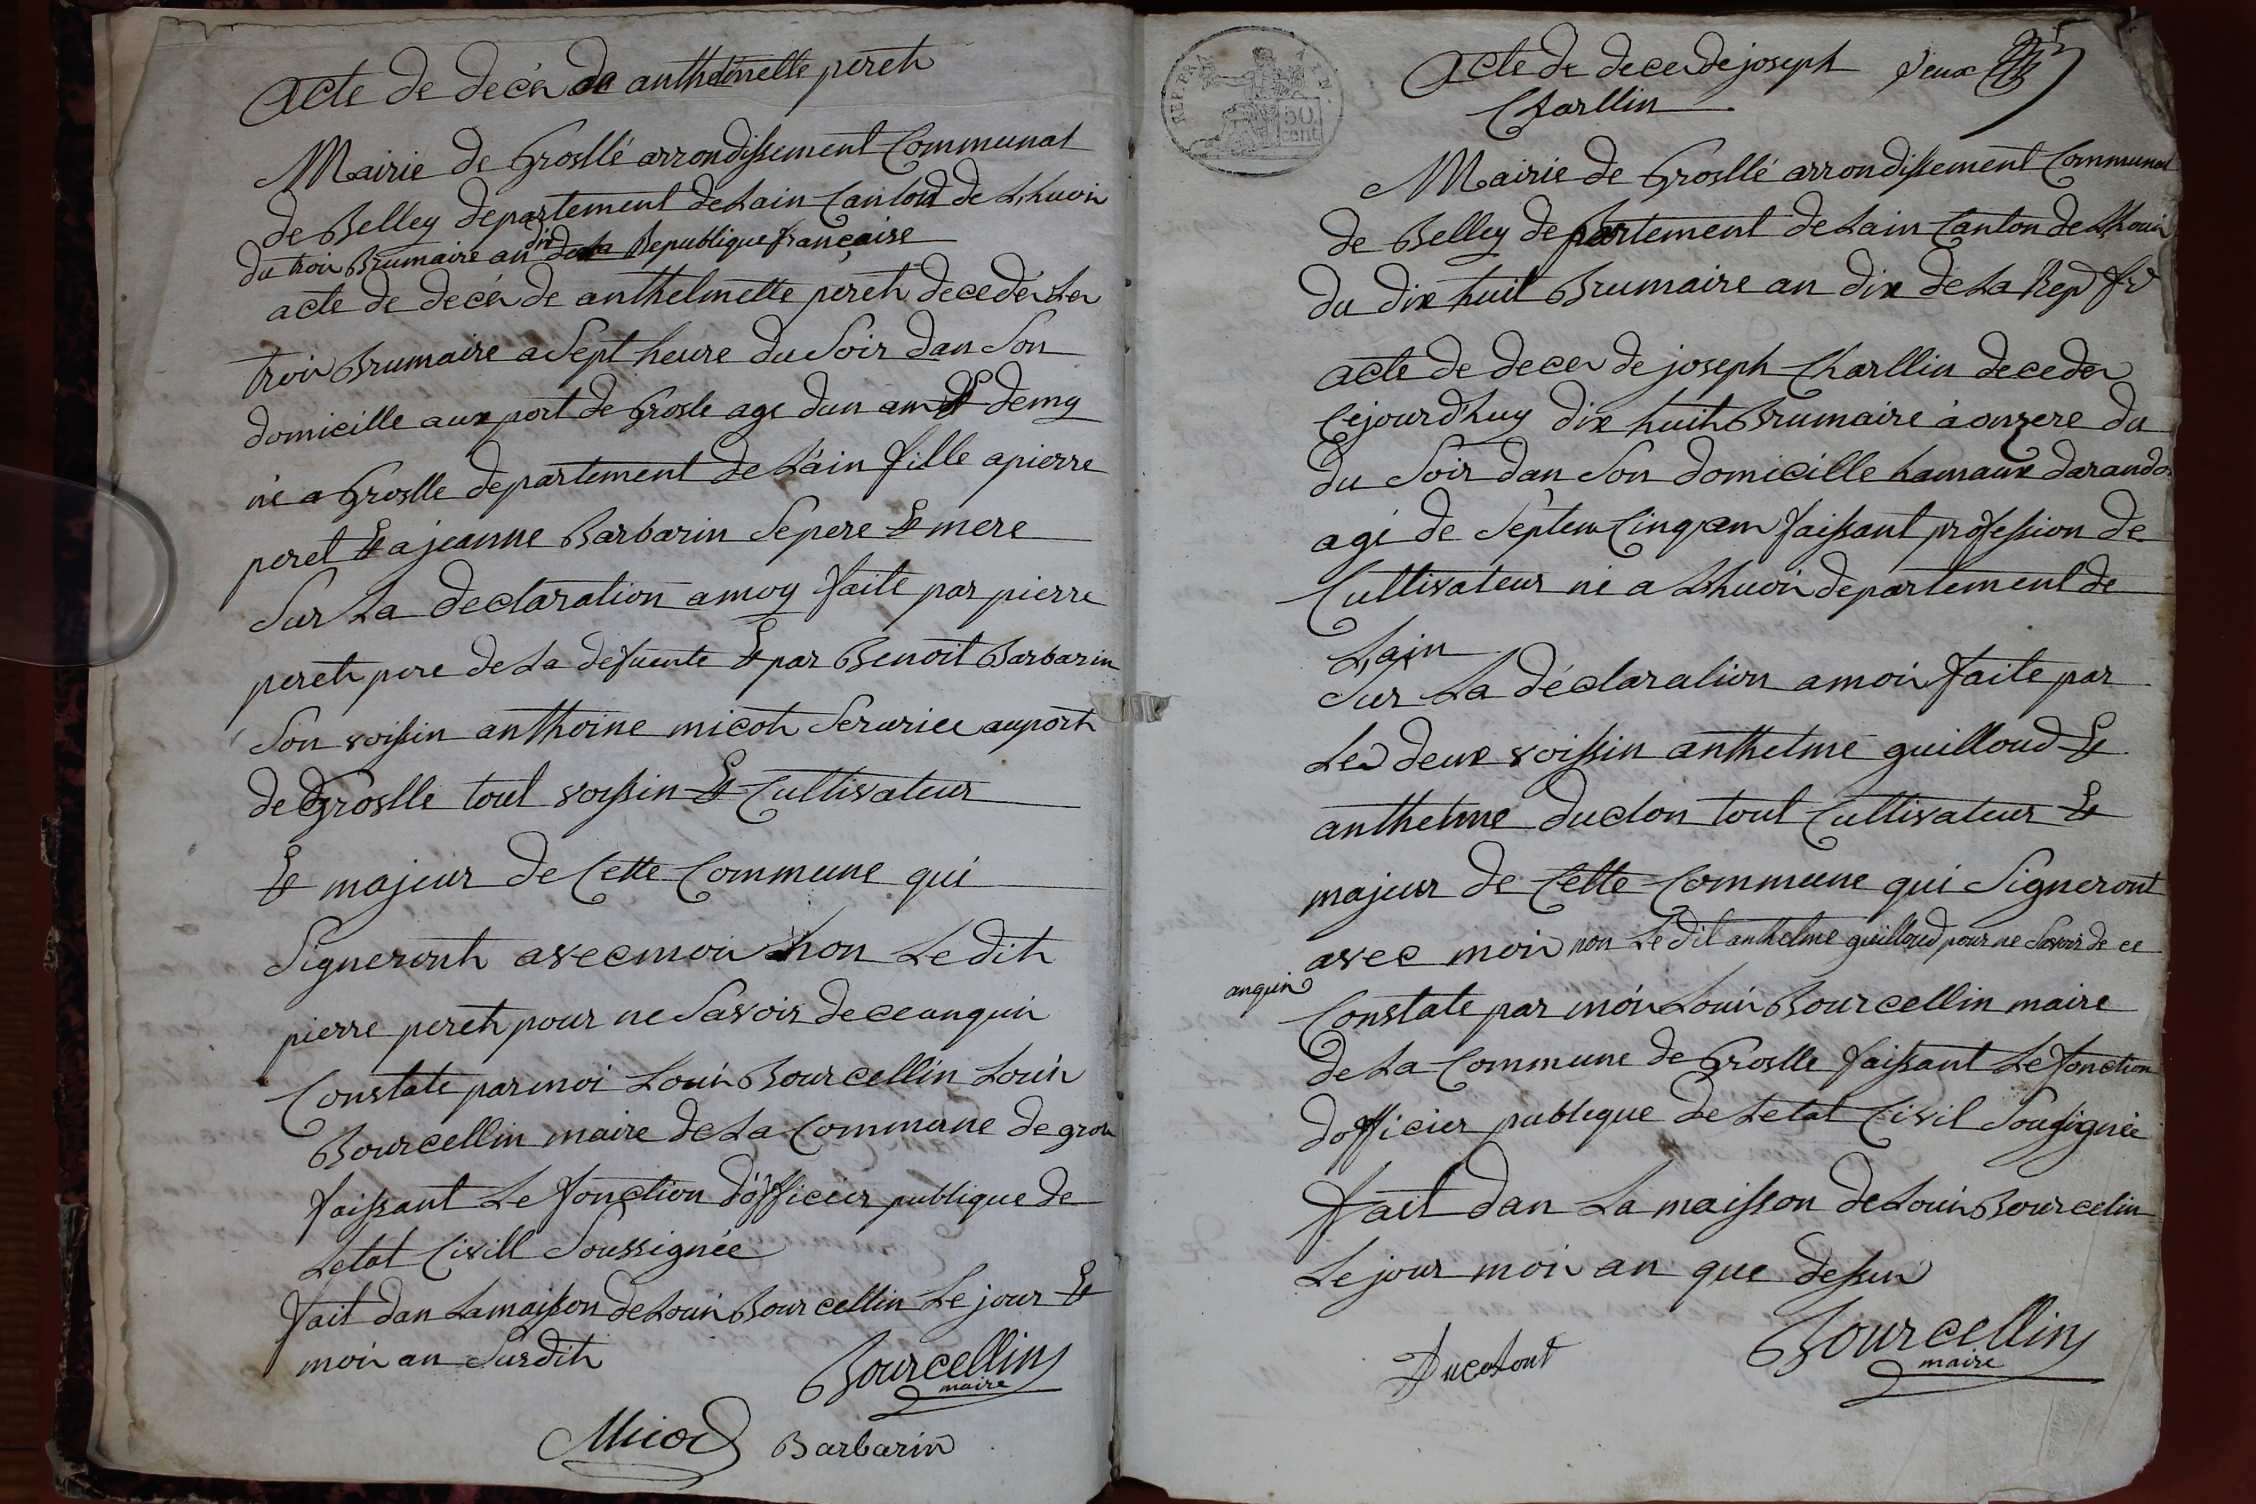 Acte de decès de anthelmette pereth
Mairie de Groslé arrondissement Communal
de Belley departement de Lain Canton de Lhuis
du trois Brumaire an dix de La Republique française
acte de decès de anthelmette pereth decedés Les
trois Brumaire a Sept heure du Soir dan Son
domicille aux port de Grosle age dun an et demy
né a Groslle departement de L'ain fille a pierre
peret Et a jeanne Barbarin Se pere Et mere
Sur La declaration a moy faite par pierre
pereth pere de La defuente Et par Benoit Barbarin
Son voissin anthoine micoh Serurier au porth
de Groslle tout voissin Et Cultivateur
Et majeur de Cette Commune qui
Signeronh avec moi non Le dih
pierre pereth pour ne Savoir de ce anquis
Constate par moi Louis Bourcellin Louis
Bourcellin maire de La Commune de gros
faissant Le fonction d'officier publique de
Letat Civill Soussignée
fait dan La maisson de Louis Bourcellin Le jour Et
mois an Surdih
Bourcellin
maire
Micod Barbarin
REP. FRA
50
cent
Acte de deces de joseph deux
Charllin
Mairie de Groslé arrondissement Communal
de Belley departement de Lain Canton de Lhouis
du dix huit Brumaire an dix de La Rep fr
acte de deces de joseph Charllin decedes
Cejourd'huy dix huith Brumaire à onzere du
du Soir dan Son domicille hamaux darando
agé de Septem Cinq an faissant profession de
Cultivateur né a Lhuis departement de
Lain
Sur La déclaration a mois faite par
Les deux voissin anthelme guilloud Et
anthelme duclos tout Cultivateur Et
majeur de Cette Commune qui Signeront
avec mois non Le dit anthelme guilloud pour ne Savoir de ce
anquis
Constate par mois Louis Bourcellin maire
de La Commune de Groslle faissant Le fonction
dofficier publique de Letat Civil Sousignée
fait dan La maisson de Louis Bourcelin
Le jour mois an que dessus
Bourcellin
maire
Ducotont